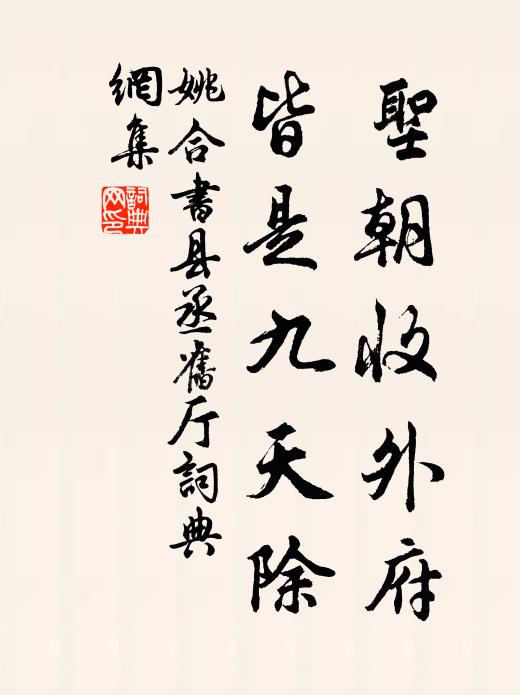 聖朝收外府
皆是九天除
姚合書县丞舊厅詞典
網集
詞典
网印